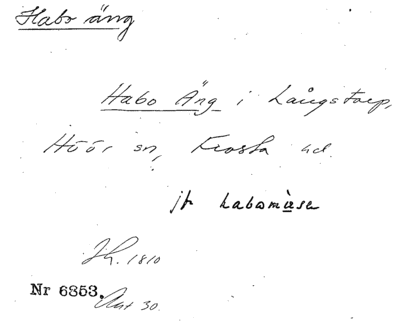 Habo äng
Habo Äng i Långstorp,
Höör sn, Frosta hd.
jfr habomàsa
Jh. 1810
Nr 6853. Akt 30.